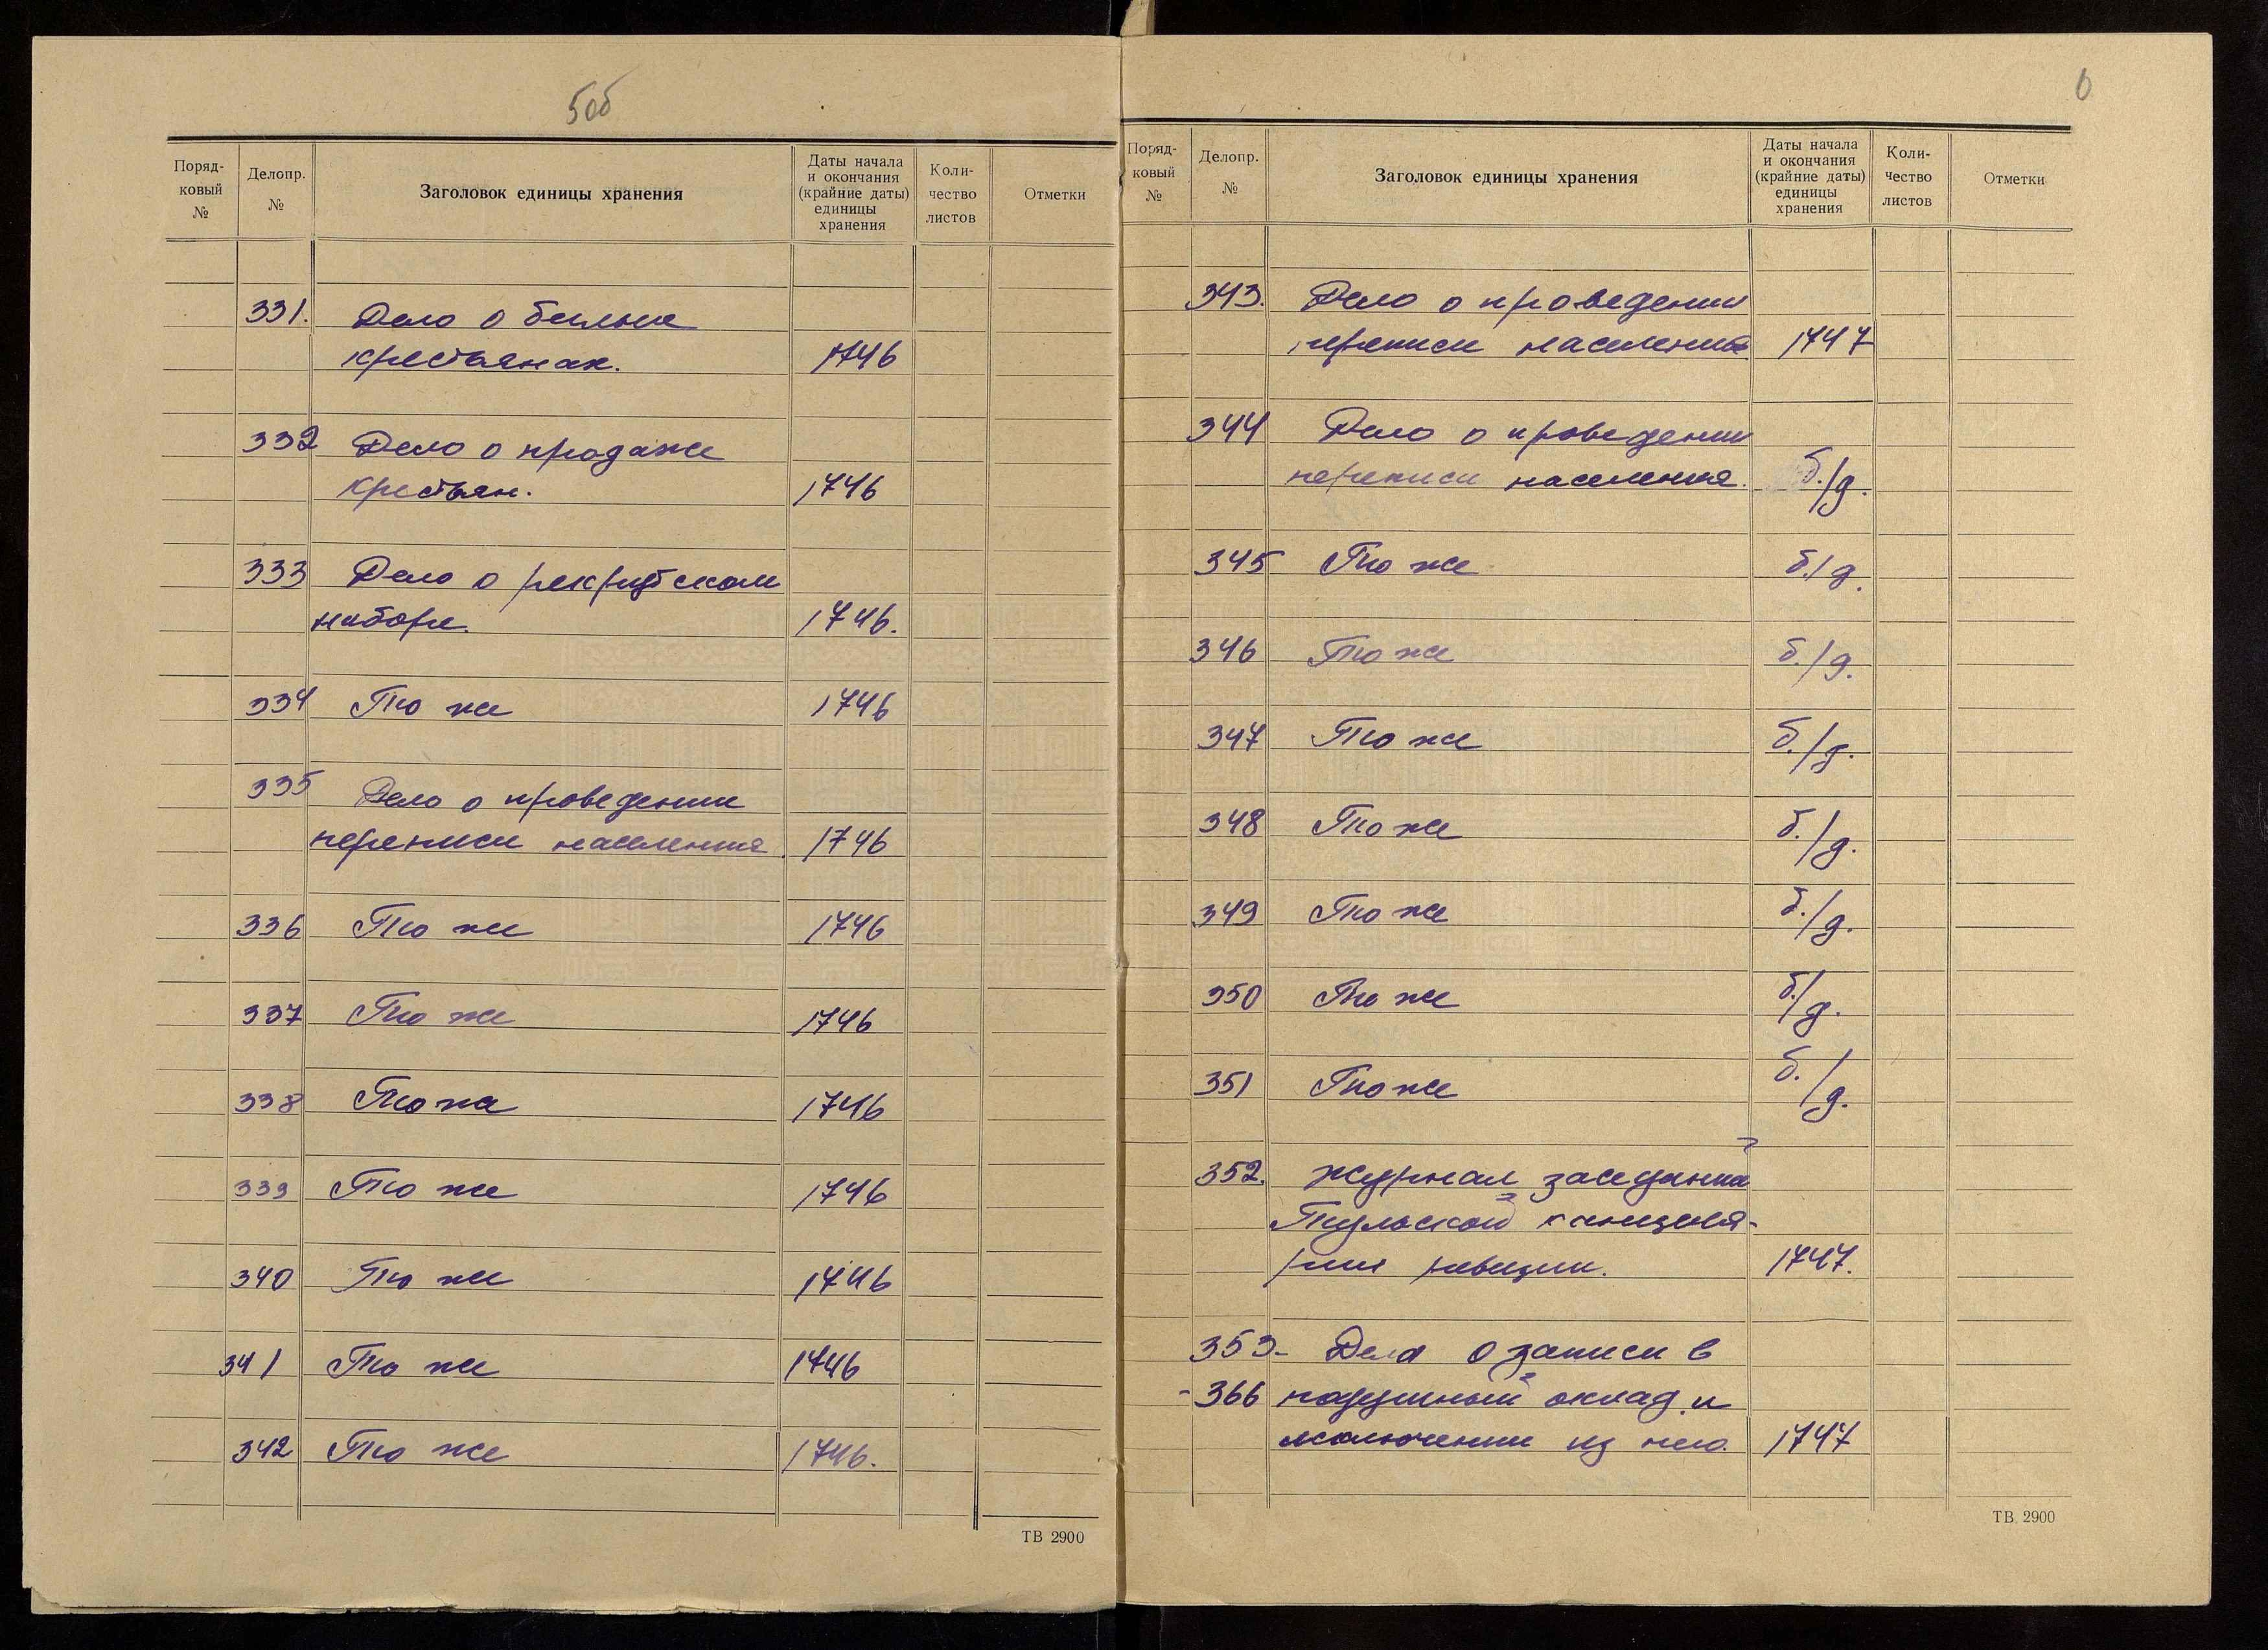 5об
Поряд-
ковый
№
Делопр.
№
Заголовок единицы хранения
Даты начала
и окончания
(крайние даты)
единицы
хранения
Коли-
чество
листов
Отметки
331. Дело о беглых
крестьянах. 1746
332 Дело о продаже
крестьян. 1746
333 Дело о рекрутском
наборе. 1746.
334 То же 1746
335 Дело о проведении
переписи населения. 1746
336 То же 1746
337 То же 1746
338 То же 1746
339 То же 1746
340 То же 1746
341 То же 1746
342 То же 1746.
ТВ 2900
6
Поряд-
ковый
№
Делопр.
№
Заголовок единицы хранения
Даты начала
и окончания
(крайние даты)
единицы
хранения
Коли-
чество
листов
Отметки
343. Дело о проведении
переписи населения 1747
344 Дело о проведении
переписи населения. б./д.
345 То же б./д.
346 То же б./д.
347 То же б./д.
348 То же б./д.
349 То же б./д.
350 То же б./д.
351 То же б./д.
352. Журнал заседаний
Тульской канцеля-
рии ревизии. 1747.
353- Дела о записи в
-366 подушный оклад и
исключении из него. 1747
ТВ 2900